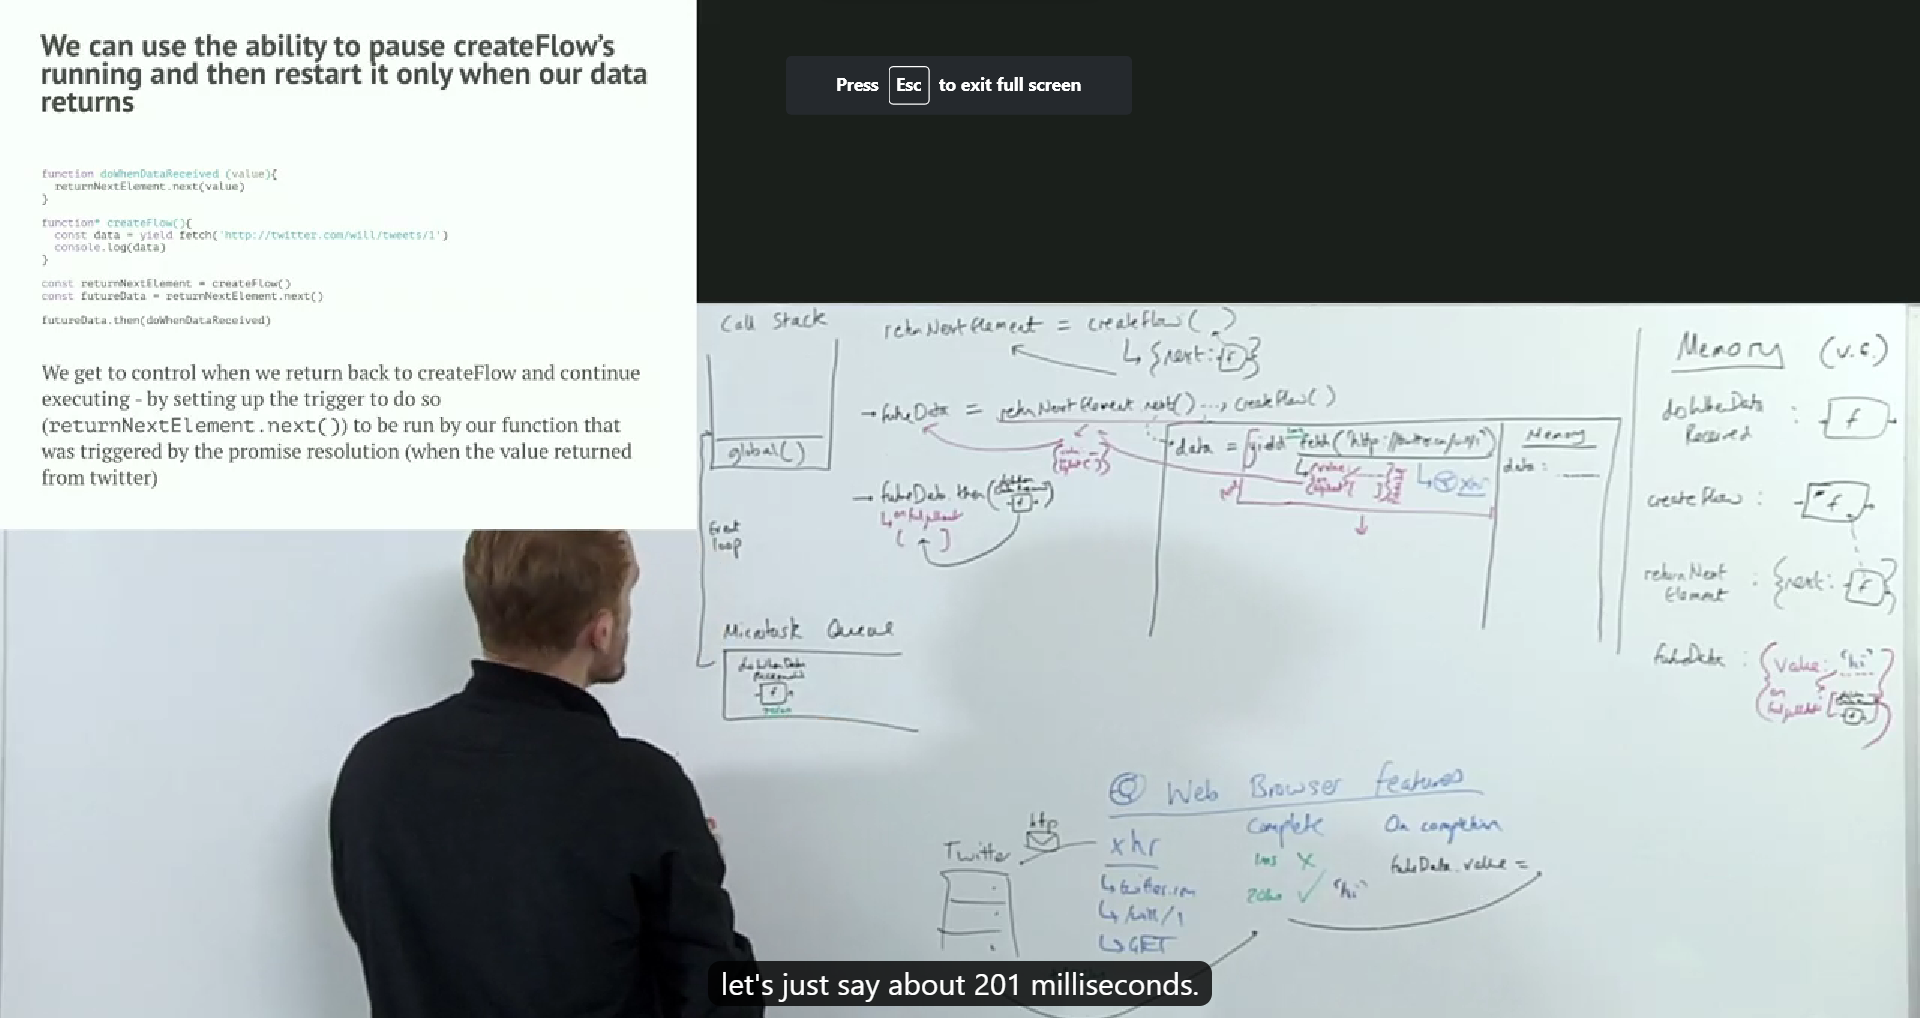 We can use the ability to pause createFlow's
running and then restart it only when our data
returns
function doWhenDataReceived (value){
returnNextElement.next(value)
}
function* createFlow(){
const data = yield fetch('http://twitter.com/will/tweets/1')
console.log(data)
}
const returnNextElement = createFlow()
const futureData = returnNextElement.next()
futureData.then(doWhenDataReceived)
We get to control when we return back to createFlow and continue
executing - by setting up the trigger to do so
(returnNextElement.next()) to be run by our function that
was triggered by the promise resolution (when the value returned
from twitter)
Press Esc to exit full screen
Call Stack
global()
Event
loop
Microtask Queue
f
= createFlow( )
{next: f }
= createFlow()
data = fetch(
Memory
data :
Memory
f
createFlow : f
returnNext
Element : {next: f }
value: "hi"
Web Browser Features
Twitter
http
xhr
twitter.com
/will/1
GET
Complete
On completion
"hi"
.value =
let's just say about 201 milliseconds.